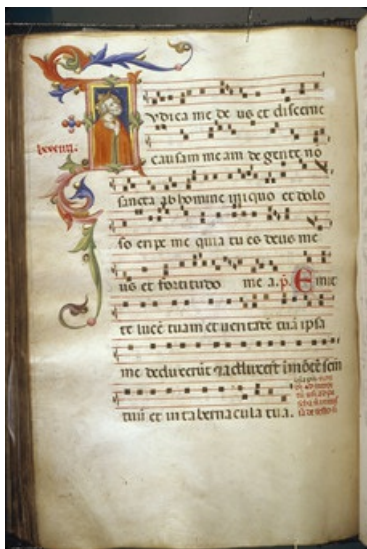 vdica me de us et discerne
causam me am de gente no
sancta ab homine iniquo et dolo
so eripe me quia tu es deus me
us et fortitudo me a. p. Emit
te lucē tuam et ueritatē tuā ipsa
me deduxerūt et adduxerūt ī mōtē sctm
tuū et in tabernacula tua.